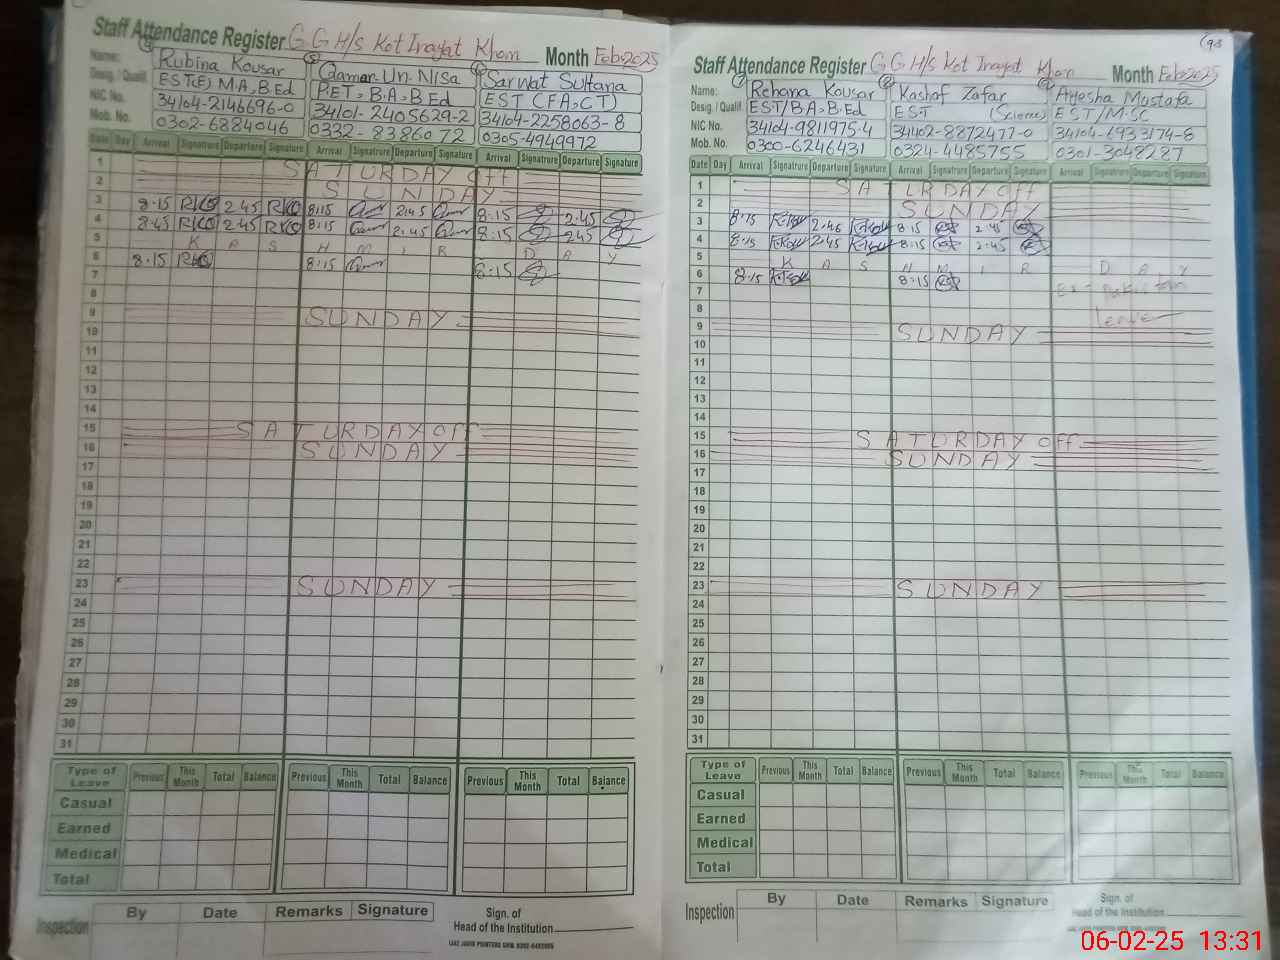 Staff Attendance Register G G H/s Kot Inayat Khan Month Feb 2025
④ ⑤ ⑥
Name: Rubina Kousar Qamar-Un-Nisa Sarwat Sultana
Desig. / Qualif. EST(E) M.A, B.Ed PET, B.A, B Ed EST (FA, CT)
NIC No. 34104-2146696-0 34101-2405629-2 34104-2258063-8
Mob. No. 0302-6884046 0332-8386072 0305-4949972
Date Day Arrival Signatrure Departure Signatrure Arrival Signatrure Departure Signatrure Arrival Signatrure Departure Signature
1 SATURDAY Off
2 SUNDAY
3 8.15 RKO 2.45 RKO 8:15 2:45 8:15 2.45
4 8.45 RKO 2.45 RKO 8:15 2.45 8:15 245
5 K A S H M I R D A Y
6 8.15 RKO 8:15 8:15
7
8
9 SUNDAY
10
11
12
13
14
15 SATURDAY Off
16 SUNDAY
17
18
19
20
21
22
23 SUNDAY
24
25
26
27
28
29
30
31
Type of Leave Previous This Month Total Balance Previous This Month Total Balance Previous This Month Total Balance
Casual
Earned
Medical
Total
Inspection By Date Remarks Signature Sign. of
Head of the Institution
Staff Attendance Register G G H/s Kot Inayat Khan Month Feb 2025
98
⑦ ⑧
Name: Rehana Kousar Kashaf Zafar Ayesha Mustafa
Desig. / Qualif. EST/BA, B.Ed EST (Science) EST/M.SC
NIC No. 34104-9811975-4 34402-8872477-0 34104-6933174-8
Mob. No. 0300-6246431 0324-4485755 0301-3048287
Date Day Arrival Signatrure Departure Signatrure Arrival Signatrure Departure Signatrure Arrival Signatrure Departure Signature
1 SATURDAY Off
2 SUNDAY
3 8:15 R.Kou 2:45 R.Kou 8:15 2:45
4 8:15 R.Kou 2:45 R.Kou 8:15 2:45
5 K A S H M I R D A Y
6 8:15 R.Kou 8:15
7 Ex-Pakistan
8 Leave
9 SUNDAY
10
11
12
13
14
15 SATURDAY Off
16 SUNDAY
17
18
19
20
21
22
23 SUNDAY
24
25
26
27
28
29
30
31
Type of Leave Previous This Month Total Balance Previous This Month Total Balance Previous This Month Total Balance
Casual
Earned
Medical
Total
Inspection By Date Remarks Signature Sign. of
Head of the Institution
06-02-25 13:31